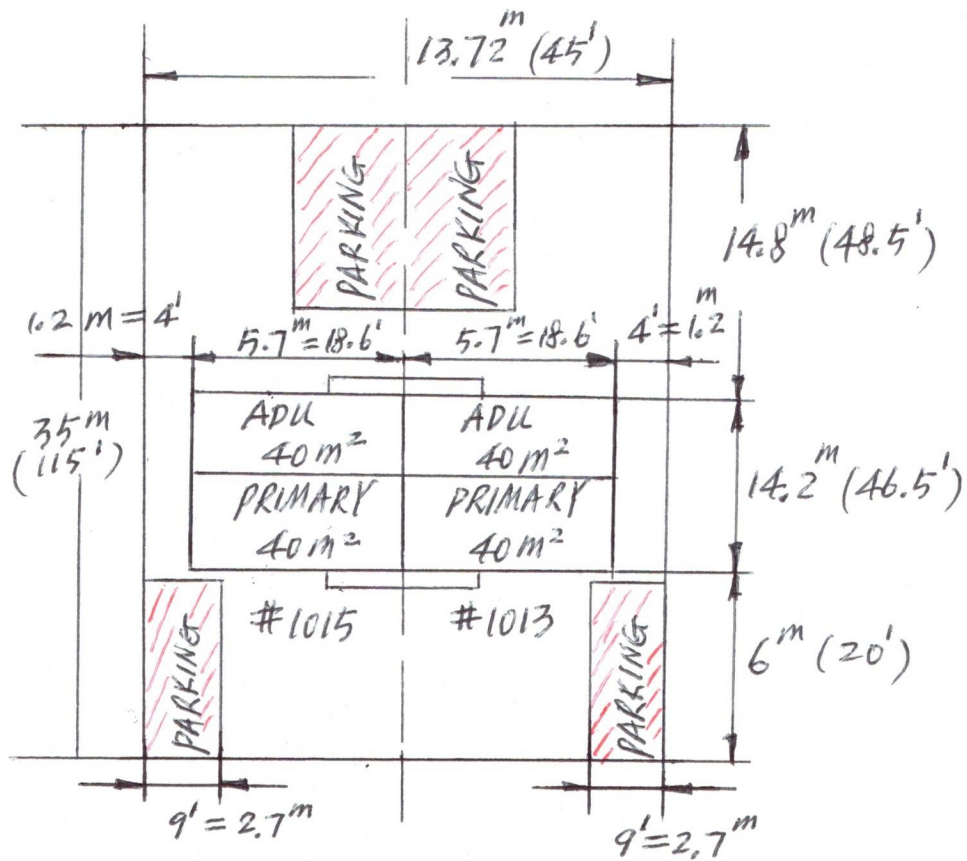 13.72m (45')
PARKING
PARKING
14.8m (48.5')
1.2 m = 4'
5.7m=18.6'
5.7m=18.6'
4'=1.2m
35m
(115')
ADU
40m²
ADU
40m²
14.2m (46.5')
PRIMARY
40m²
PRIMARY
40m²
#1015
#1013
PARKING
PARKING
6m (20')
9'=2.7m
9'=2.7m